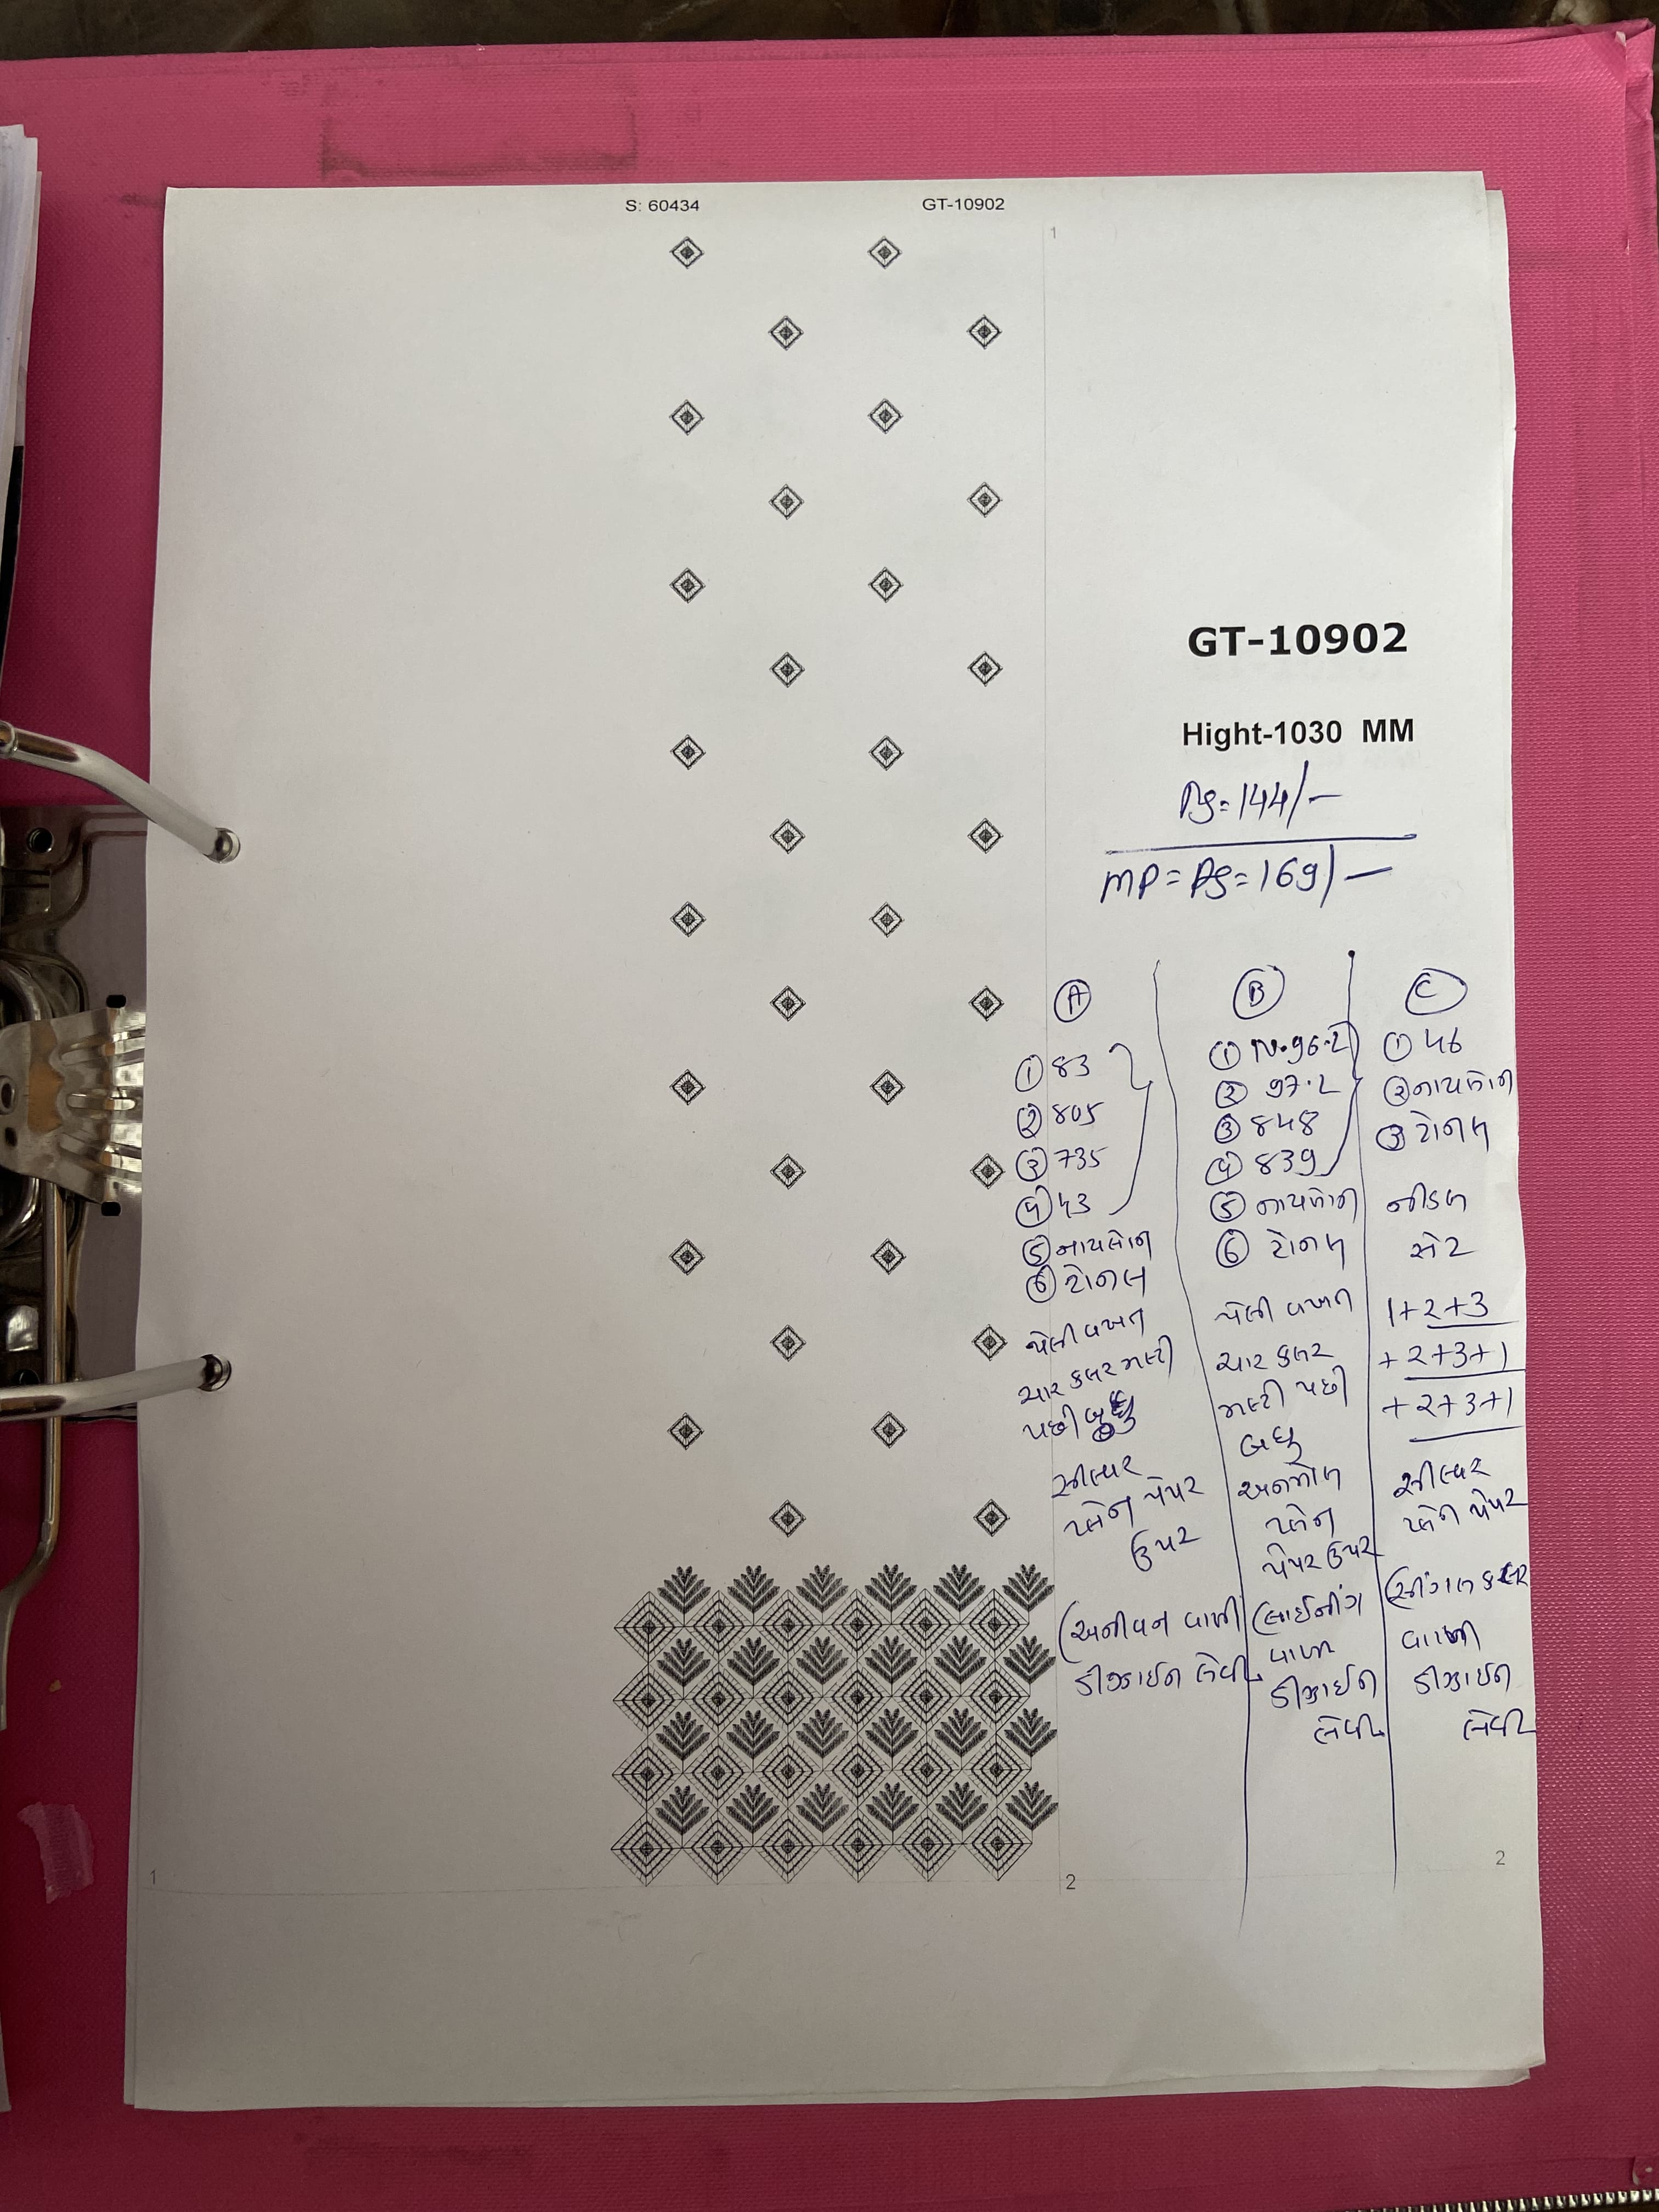 S: 60434 GT-10902
1
GT-10902
Hight-1030 MM
Rs=144/-
MP = Rs=169/-
A
① 83
② 805
③ 735
④ 43
⑤ નાયલોન
⑥ ટોનલ
પેલી વખત
ચાર કલર મલ્ટી
પછી બધુ
સીલ્વર
પ્લેન પેપર
ઉપર
(અનીવન વાળી
ડીઝાઈન લેવી
B
① N.96.2
② 97.2
③ 848
④ 839
⑤ નાયલોન
⑥ ટોનલ
પેલી વખત
ચાર કલર
મલ્ટી પછી
બધુ
અનમોલ
પ્લેન
પેપર ઉપર
(લાઈનીંગ
વાળી
ડીઝાઈન
લેવી
C
① 46
② નાયલોન
③ ટોનલ
નીડલ
સેટ
1+2+3
+2+3+1
+2+3+1
સીલ્વર
પ્લેન પેપર
(સીંગલ કલર
વાળી
ડીઝાઈન
લેવી
1
2
2